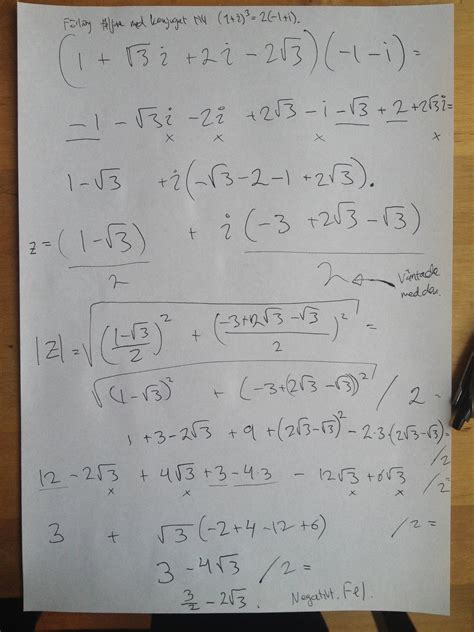 Förläng täljare med konjugat till (1+i)³ = 2(-1+i).
(1 + √3 i + 2i - 2√3)(-1-i) =
-1 - √3 i - 2i + 2√3 - i - √3 + 2 + 2√3 i =
x x x x
1-√3 + i(-√3-2-1+2√3).
z = (1-√3)/2 + i(-3+2√3-√3)/2
Väntade med den.
|z| = √(((1-√3)/2)² + ((-3+2√3-√3)/2)²) =
√((1-√3)² + (-3+(2√3-√3))²) / 2 =
1+3-2√3 + 9 + (2√3-√3)² - 2·3(2√3-√3) = /2
12 - 2√3 + 4√3 + 3 - 4·3 - 12√3 + 6√3 /2 =
x x x x
3 + √3(-2+4-12+6) /2 =
3 - 4√3 /2 =
3/2 - 2√3. Negativt. Fel.